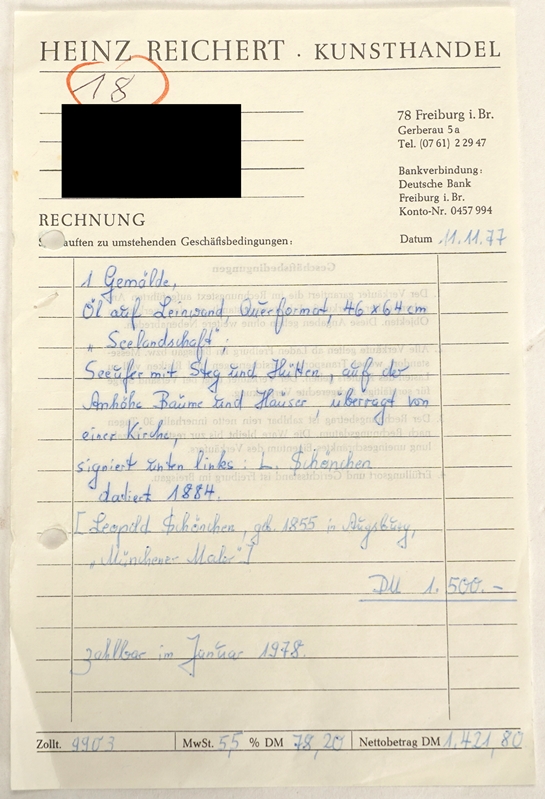 HEINZ REICHERT · KUNSTHANDEL
18
78 Freiburg i. Br.
Gerberau 5a
Tel. (07 61) 2 29 47
Bankverbindung:
Deutsche Bank
Freiburg i. Br.
Konto-Nr. 0457 994
RECHNUNG
auften zu umstehenden Geschäftsbedingungen:
Datum 11.11.77
1 Gemälde,
Öl auf Leinwand Querformat, 46 x 64 cm
„Seelandschaft";
Seeufer mit Steg und Hütten, auf der
Anhöhe Bäume und Häuser, überragt von
einer Kirche,
signiert unten links: L. Schönchen
datiert 1884.
[Leopold Schönchen, geb. 1855 in Augsburg,
„Münchener Maler"]
DM 1.500.-
zahlbar im Januar 1978.
Zollt. 9903 MwSt. 5,5 % DM 78,20 Nettobetrag DM 1.421,80